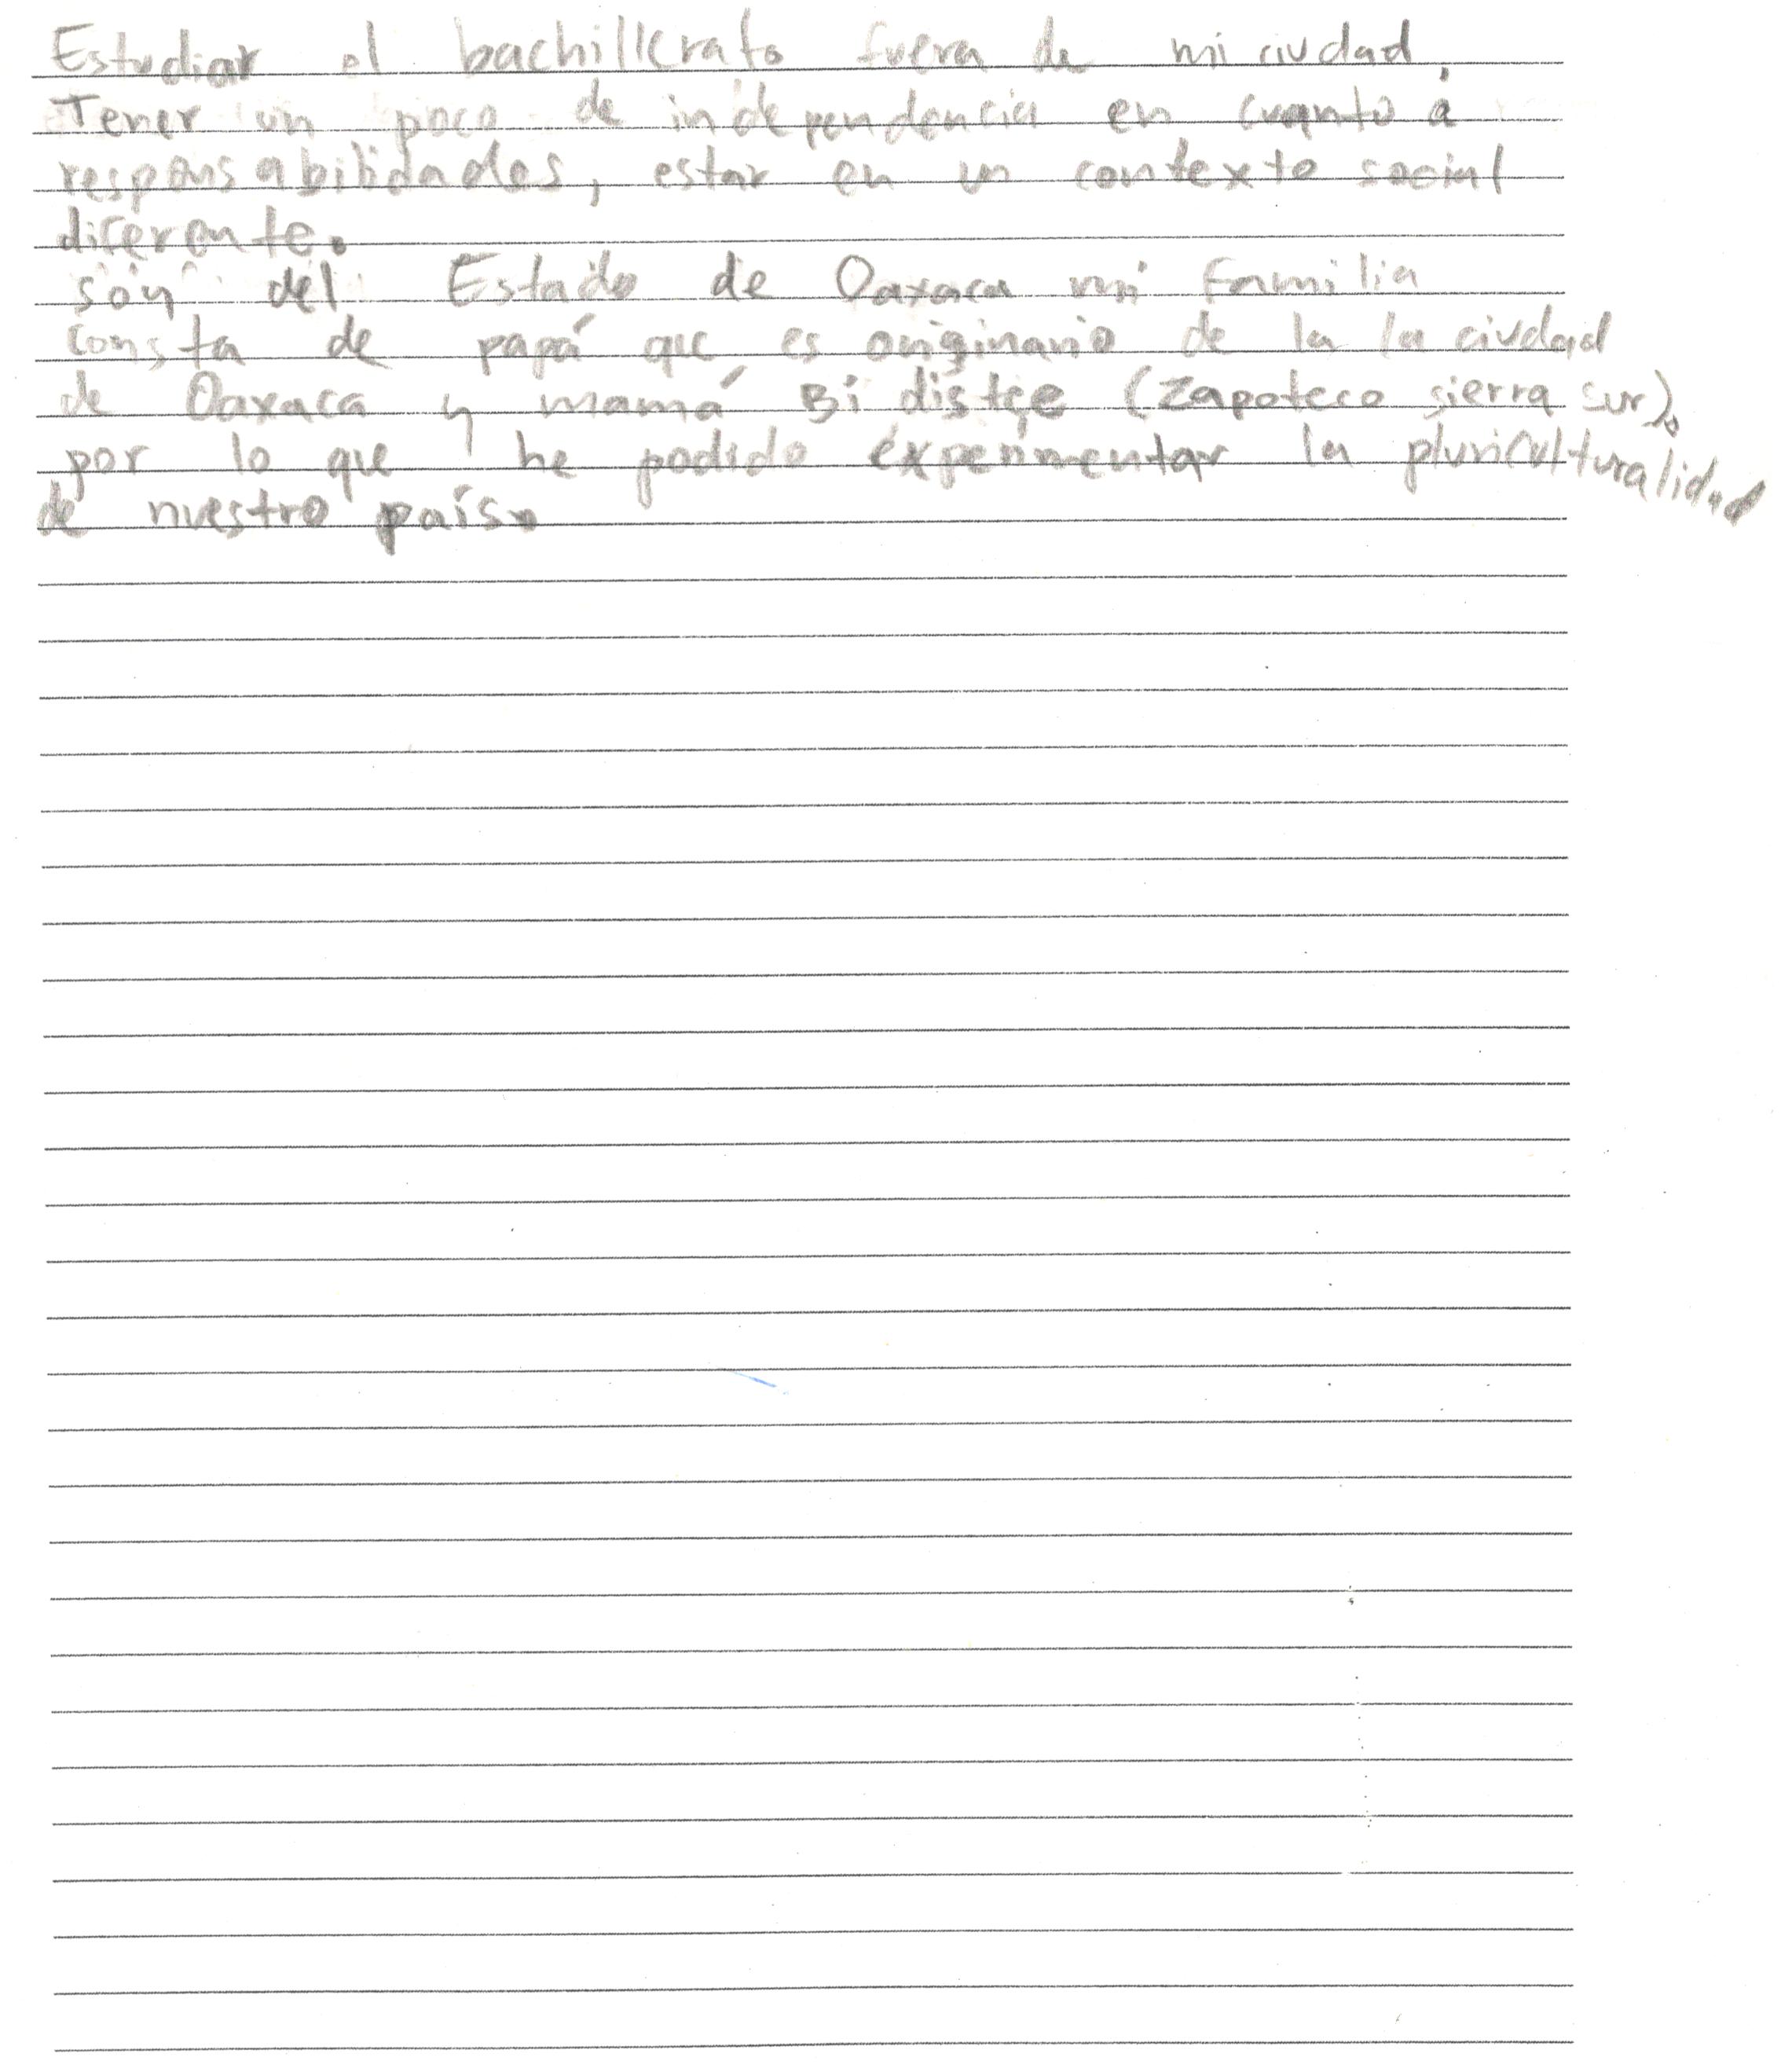 Estudiar el bachillerato fuera de mi ciudad,
Tener un poco de independencia en cuanto a
responsabilidades, estar en un contexto social
diferente.
soy del Estado de Oaxaca mi familia
consta de papá que es originario de la la ciudad
de Oaxaca y mamá Bi distçe (zapoteco sierra sur),
por lo que he podido experimentar la pluriculturalidad
de nuestro país.